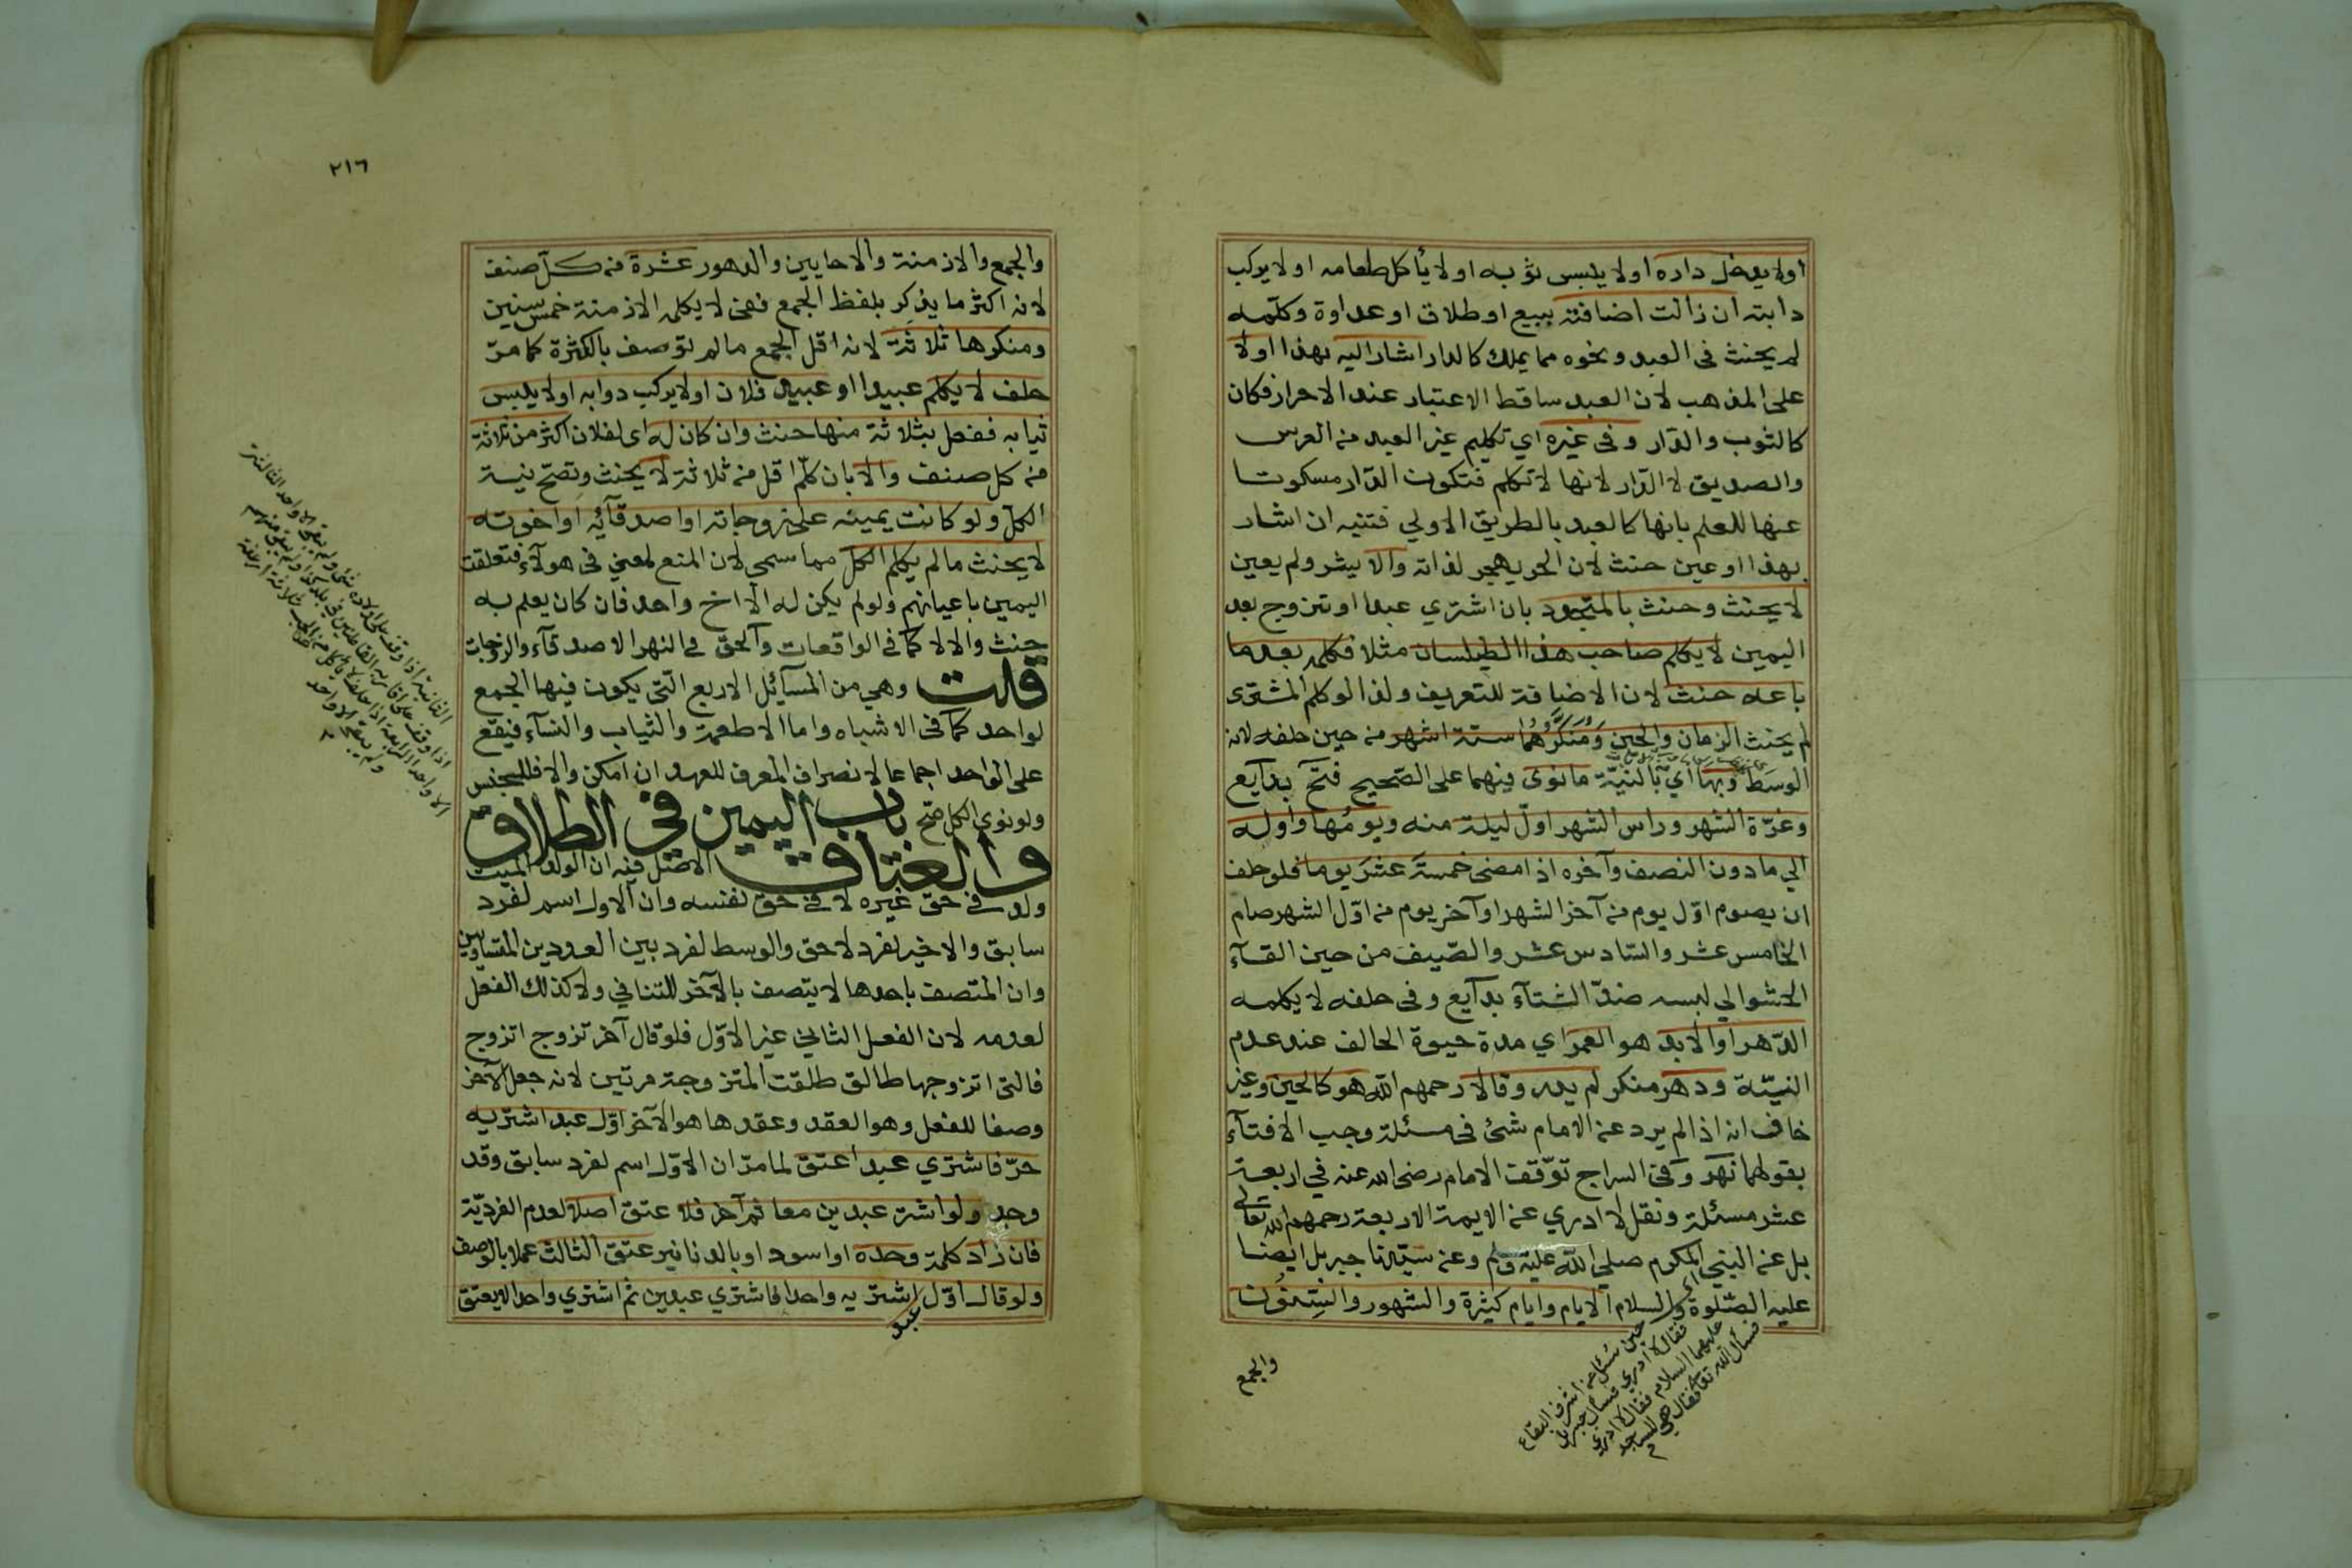 اولا يدخل داره اولا يلبس ثوبه اولا يأكل طعامه اولا يركب
دابته ان زالت اضافته ببيع او طلاق او عداوة وكلّمه
لم يحنث فى العبد ونحوه مما يملك كالدار اشار اليه بهذا اولا
على المذهب لان العبد ساقط الاعتبار عند الاحرار فكان
كالثوب والدّار وفى غيره اي تكليم غير العبد من العرس
والصديق لا الدّار لانها لا تكلم فتكون الدّار مسكوتا
عنها للعلم بانها كالعبد بالطريق الاولي فتنبه ان اشار
بهذا او عين حنث لان الحر يهجر لذاته والا يشر ولم يعين
لا يحنث وحنث بالمتجدد بان اشتري عبدا او تزوج بعد
اليمين لا يكلم صاحب هذا الطيلسان مثلا فكلمه بعد ما
باعه حنث لان الاضافة للتعريف ولذا لو كلم المشترى
لم يحنث الزمان والحين ومنكرُهُما ستة اشهر من حين حلفه لانه
الوسط وبها اي بالنيّة ما نوى فيهما على الصّحيح فتح بدآيع
وغرّة الشهر وراس الشهر اوّل ليلة منه ويومها واوله
الي ما دون النصف وآخره اذا مضى خمسة عشر يوما فلو حلف
ان يصوم اوّل يوم من آخر الشهر او آخر يوم من اوّل الشهر صام
الخامس عشر والسّادس عشر والصّيف من حين القآء
الحشو الي لبسه ضدّ الشتآء بدآيع وفى حلفه لا يكلمه
الدّهر او الابد هو العمر اي مدة حيوة الحالف عند عدم
النيّة ودهر منكر لم يدر وقالا رحمهم الله هو كالحين وغير
خاف انه اذا لم يرد عن الامام شئ فى مسئلة وجب الافتآء
بقولهما نهر وفى السراج توّقف الامام رضى الله عنه في اربعة
عشر مسئلة ونقل لا ادري عن الايمة الاربعة رحمهم الله تعالى
بل عن النبي المكرم صلي الله عليه وسلم وعن سيّدنا جبريل ايضا
عليه الصّلوة والسلام الايام وايام كثيرة والشهور والسِنُون
حين سُئل عن اشرف البقاع
فقال لا ادري فسأل جبريل
عليهما السلام فقال لا ادري
فسأل الله تعالى فقال هى المساجد
والجمع
٢١٦
والجمع والازمنة والاحايين والدهور عشرة من كلّ صنف
لانه اكثر ما يذكر بلفظ الجمع ففى لا يكلمه الازمنة خمس سنين
ومنكرها ثلاثة لانه اقل الجمع ما لم توصف بالكثرة كما مرّ
حلف لا يكلم عبيدا او عبيد فلان اولا يركب دوابه اولا يلبس
ثيابه ففعل بثلاثة منها حنث وان كان له اى لفلان اكثر من ثلاثة
من كل صنف والا بان كلّم اقل من ثلاثة لا يحنث وتصحّ نيـة
الكلّ ولو كانت يمينه على زوجاته او اصدقآئه او اخوته
لا يحنث ما لم يكلم الكلّ مما سمي لان المنع لمعني فى هولآء فتعلقت
اليمين باعيانهم ولو لم يكن له الا اخ واحد فان كان يعلم به
حنث والا لا كما في الواقعات والحق في النهر الاصدقآء والزوجات
قلت وهي من المسآئل الاربع الّتى يكون فيها الجمع
لواحد كما فى الاشباه واما الاطعمة والثياب والنسآء فيقع
على الواحد اجماعا لانصراف المعرف للعهد ان امكن والا فللجنس
ولو نوى الكل صحّ باب اليمين في الطلاق
والعتاق الاصل فيه ان الولد الميت
ولد في حق غيره لا في حق نفسه وان الاول اسم لفرد
سابق والاخير لفرد لاحق والوسط لفرد بين العددين المتساويين
وان المتصف باحدها لا يتصف بالآخر للتنافي ولا كذلك الفعل
لعدمه لان الفعل الثاني غير الاوّل فلو قال آخر تزوج اتزوج
فالتى اتزوجها طالق طلقت المتزوجة مرتين لانه جعل الآخر
وصفا للفعل وهو العقد وعقدها هو الآخر اوّل عبد اشتريه
حرّ فاشتري عبدا عتق لما مرّ ان الاوّل اسم لفرد سابق وقد
وجد ولو اشتر عبدين معا ثم آخر فلا عتق اصلا لعدم الفرديّة
فان زاد كلمة وحده او اسود او بالدنانير عتق الثالث عملا بالوصف
ولو قال اوّل اشتريه واحدا فاشتري عبدين ثم اشتري واحدا لا يعتق
عبد